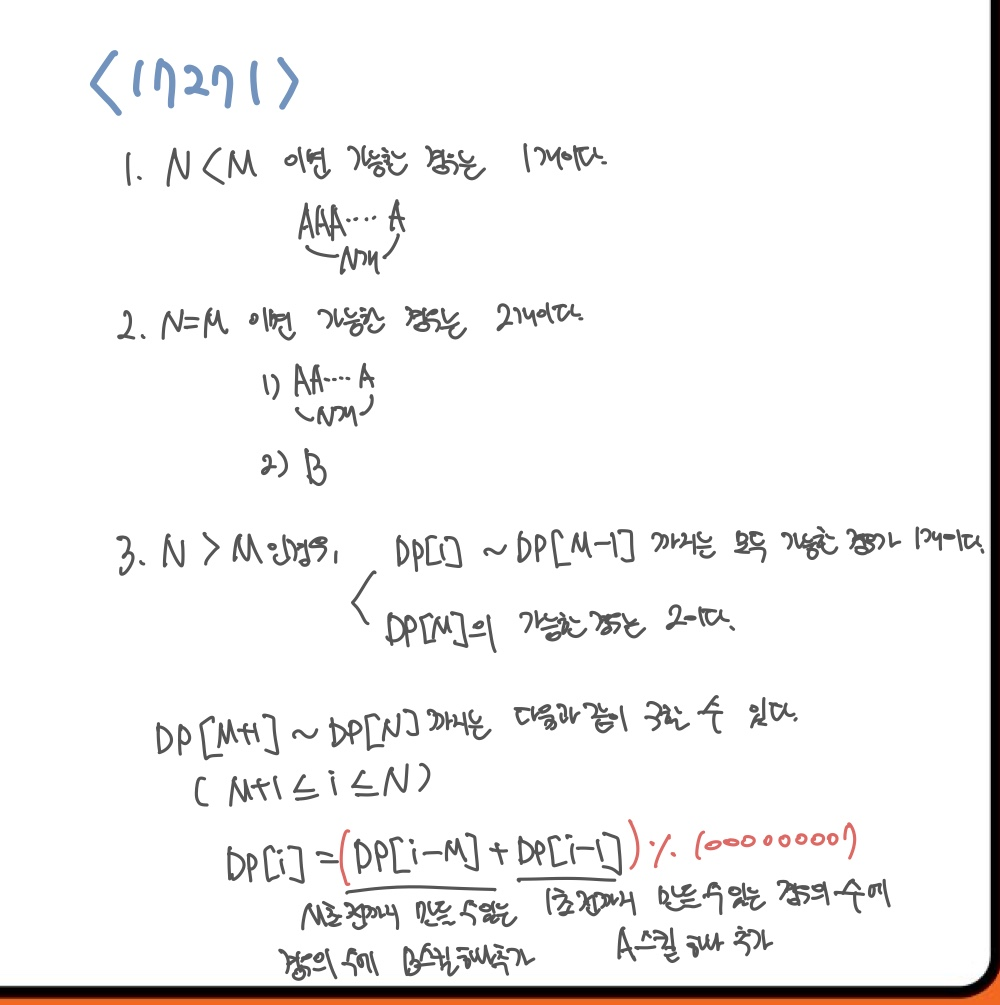 <17271>
1. N<M 이면 가능한 경우는 1개이다.
AAA···· A
N개
2. N=M 이면 가능한 경우는 2개이다.
1) AA···· A
N개
2) B
3. N > M 인경우, DP[1] ~ DP[M-1] 까지는 모두 가능한 경우가 1개이다.
DP[M]의 가능한 경우는 2이다.
DP[M+1] ~ DP[N] 까지는 다음과 같이 구할 수 있다.
( M+1 ≤ i ≤ N )
DP[i] = (DP[i-M] + DP[i-1]) % 1000000007
M초 전까지 만들 수 있는 경우의 수에 B스킬 하나 추가
1초 전까지 만들 수 있는 경우의 수에 A스킬 하나 추가